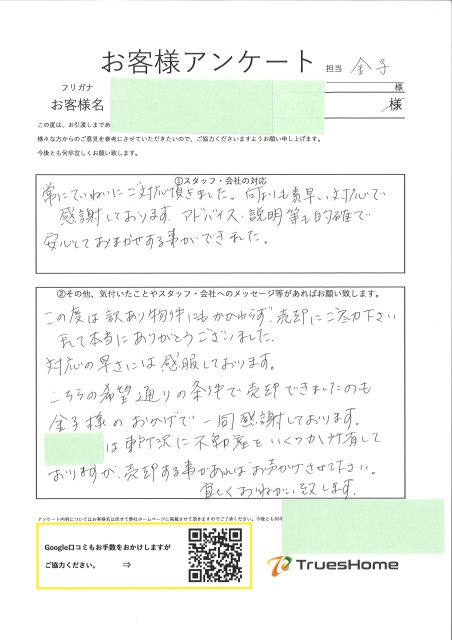 お客様アンケート 担当 金子
フリガナ 様
お客様名 様
この度は、お引渡しまであ
様々な方からのご意見を参考にさせていただきたいので、ご協力くださいますようお願い申し上げます。
今後とも何卒宜しくお願い致します。
①スタッフ・会社の対応
常にていねいにご対応頂きました。何よりも素早い対応で
感謝しております。アドバイス・説明等も的確で
安心しておまかせする事ができれた。
②その他、気付いたことやスタッフ・会社へのメッセージ等があればお願い致します。
この度は訳あり物件にもかかわらず、売却にご尽力下さい
まして本当にありがとうございました。
対応の早さには感服しております。
こちらの希望通りの条件で売却できましたのも
金子様のおかげで一同感謝しております。
は所沢に不動産をいくつか所有して
おりますが、売却する事があればお声がけさせて下さい。
宜しくおねがい致します。
アンケート内容についてはお客様名は伏せて弊社ホームページに掲載させて頂きますのでご了承ください。今後とも何卒
Google口コミもお手数をおかけしますが
ご協力ください。 ⇒
TruesHome